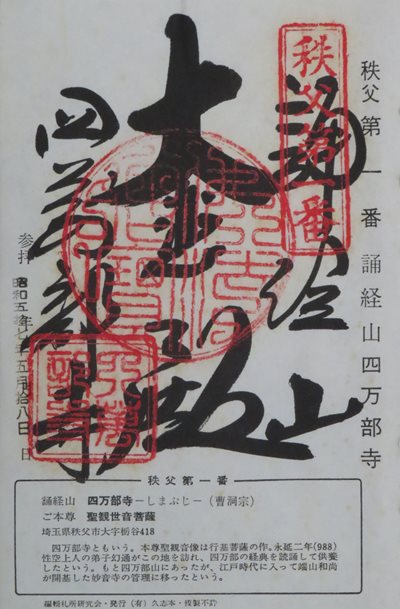 秩父第一番 誦経山四万部寺
秩父第一番
誦経山
大悲殿
四萬部寺
参拝 昭和五拾七年五月拾八日 日
秩父第一番
誦経山 四万部寺－しまぶじ－(曹洞宗)
ご本尊 聖観世音菩薩
埼玉県秩父市大字栃谷418
四万部寺ともいう。本尊聖観音像は行基菩薩の作。永延二年(988)
性空上人の弟子幻通がこの地を訪れ、四万部の経典を読誦して供養
したという。もと四万部山にあったが、江戸時代に入って端山和尚
が開基した妙音寺の管理に移ったという。
札所研究会・発行(有)久志本・複製不許